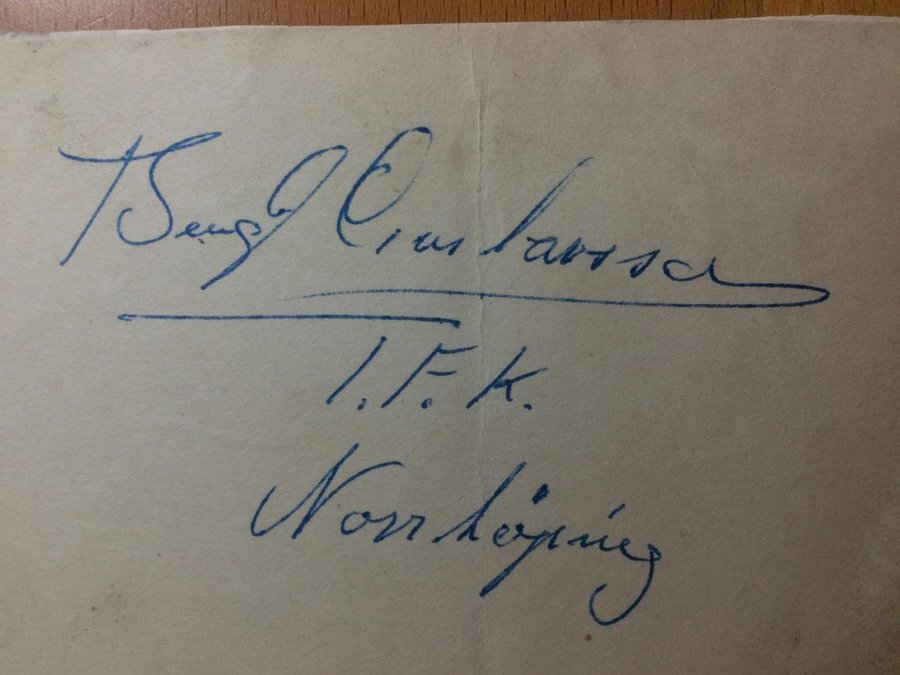 Bengt Gustavsson
I.F.K.
Norrköping